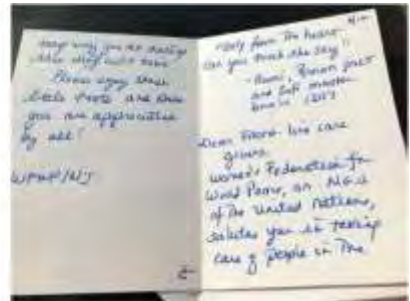 you are doing
Please enjoy these
little treats and know
you are appreciated
by all!
WFWP/NJ
"Only from the heart
can you touch the sky"
- Rumi, Persian poet
and Sufi master
born in 1207
Dear Front line care
givers
Women's Federation for
World Peace, an NGO
of the United Nations,
salutes you in taking
care of people in the